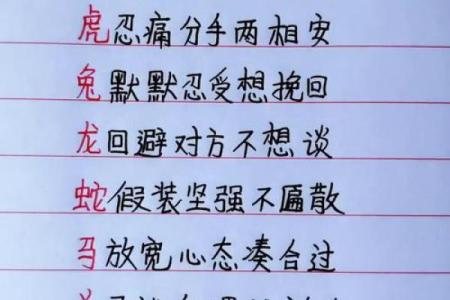 虎忍痛分手两相安
兔默默忍受想挽回
龙回避对方不想谈
蛇假装坚强不匾散
马放宽心态凑合过